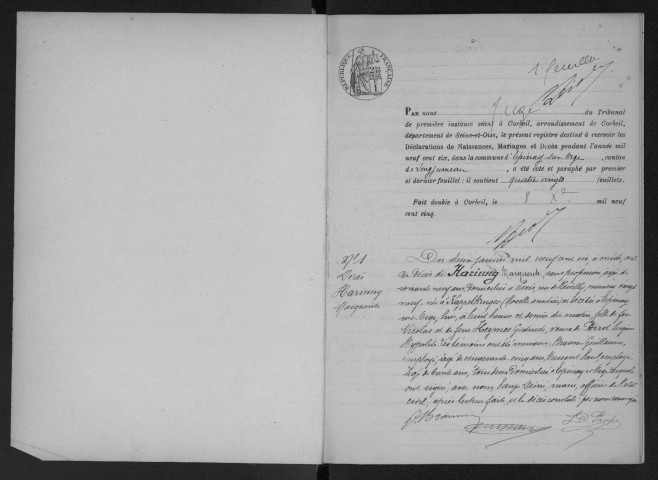 1er feuillet
RÉPUBLIQUE FRANÇAISE
PAR NOUS Juge du Tribunal
de première instance séant à Corbeil, arrondissement de Corbeil,
département de Seine-et-Oise, le présent registre destiné à recevoir les
Déclarations de Naissances, Mariages et Décès pendant l'année mil
neuf cent six, dans la commune d'Épinay sur Orge, canton
de Longjumeau, a été coté et paraphé par premier
et dernier feuillet; il contient quatre vingts feuillets.
Fait double à Corbeil, le 8 Xbre mil neuf
cent cinq.
No 1
Décès
Hariung
Marguerite
Du deux janvier mil neuf cent six à midi, acte
de Décès de Hariung Marguerite, sans profession, âgée de
soixante neuf ans, domiciliée à Paris, rue de Reuilly, numéro vingt
neuf, née à Kappelkinger (Moselle annexée) et décédée à Épinay
sur Orge, hier, à huit heures et demie du matin, fille de feu
Nicolas et de feue Heymes Gertrude, veuve de Perrot
Hyppolite. Les témoins ont été messieurs Guillaume,
employé, âgé de cinquante cinq ans, Paul employé
âgé de trente ans, tous deux domiciliés à Épinay sur Orge, lesquels
ont signé avec nous, maire, officier de l'état
civil, après lecture faite et le décès constaté par nous